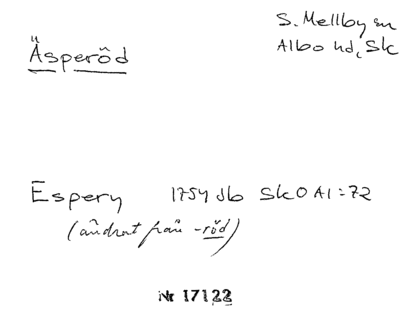 Äsperöd
S. Mellby sn
Albo hd, Sk
Espery 1754 Jb Sk O Al:72
(ändrat från -röd)
Nr 17122